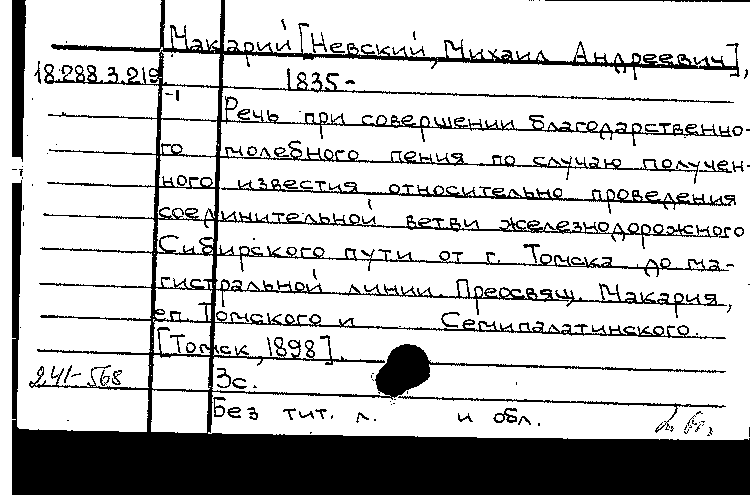 Макарий [Невский, Михаил Андреевич],
18.288.3.219 1835-
-1 Речь при совершении благодарственно-
го молебного пения по случаю получен-
ного известия относительно проведения
соединительной ветви железнодорожного
Сибирского пути от г. Томска до ма-
гистральной линии. Преосвящ. Макария,
еп. Томского и Семипалатинского.
[Томск, 1898].
241-568 3с.
Без тит. л. и обл.